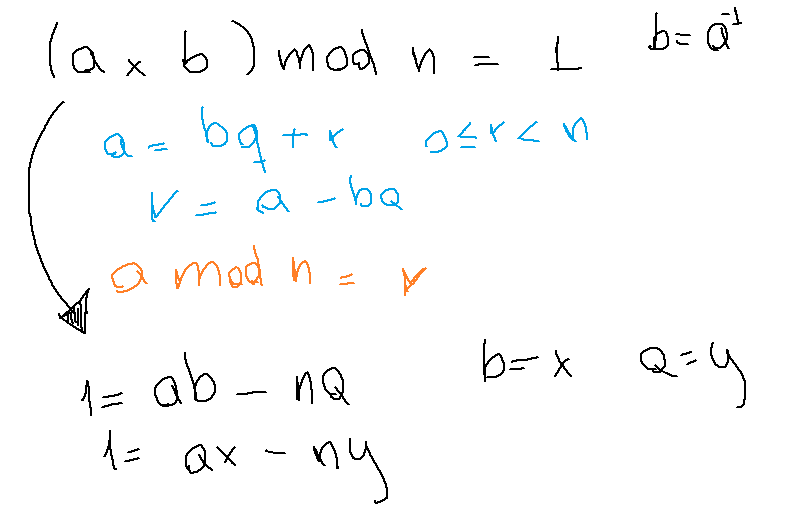 (a × b) mod n = 1 b = a⁻¹
a = bq + r 0 ≤ r < n
r = a - bQ
a mod n = r
1 = ab - nQ b = x Q = y
1 = ax - ny